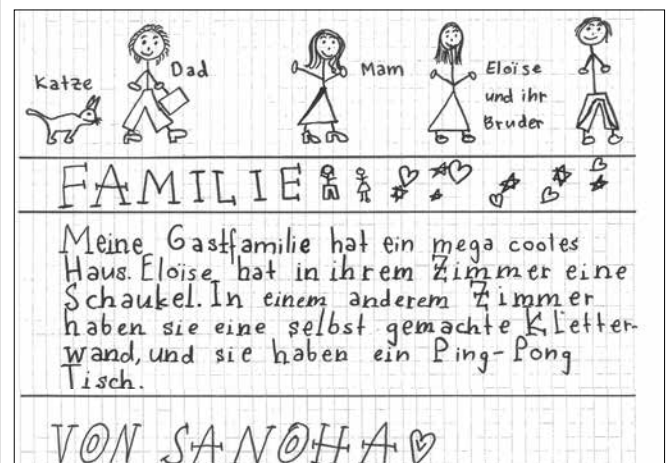 Katze
Dad
Mam
Eloïse
und ihr
Bruder
FAMILIE
Meine Gastfamilie hat ein mega cooles
Haus. Eloïse hat in ihrem Zimmer eine
Schaukel. In einem anderem Zimmer
haben sie eine selbst gemachte Kletter-
wand, und sie haben ein Ping-Pong
Tisch.
VON SANOHA